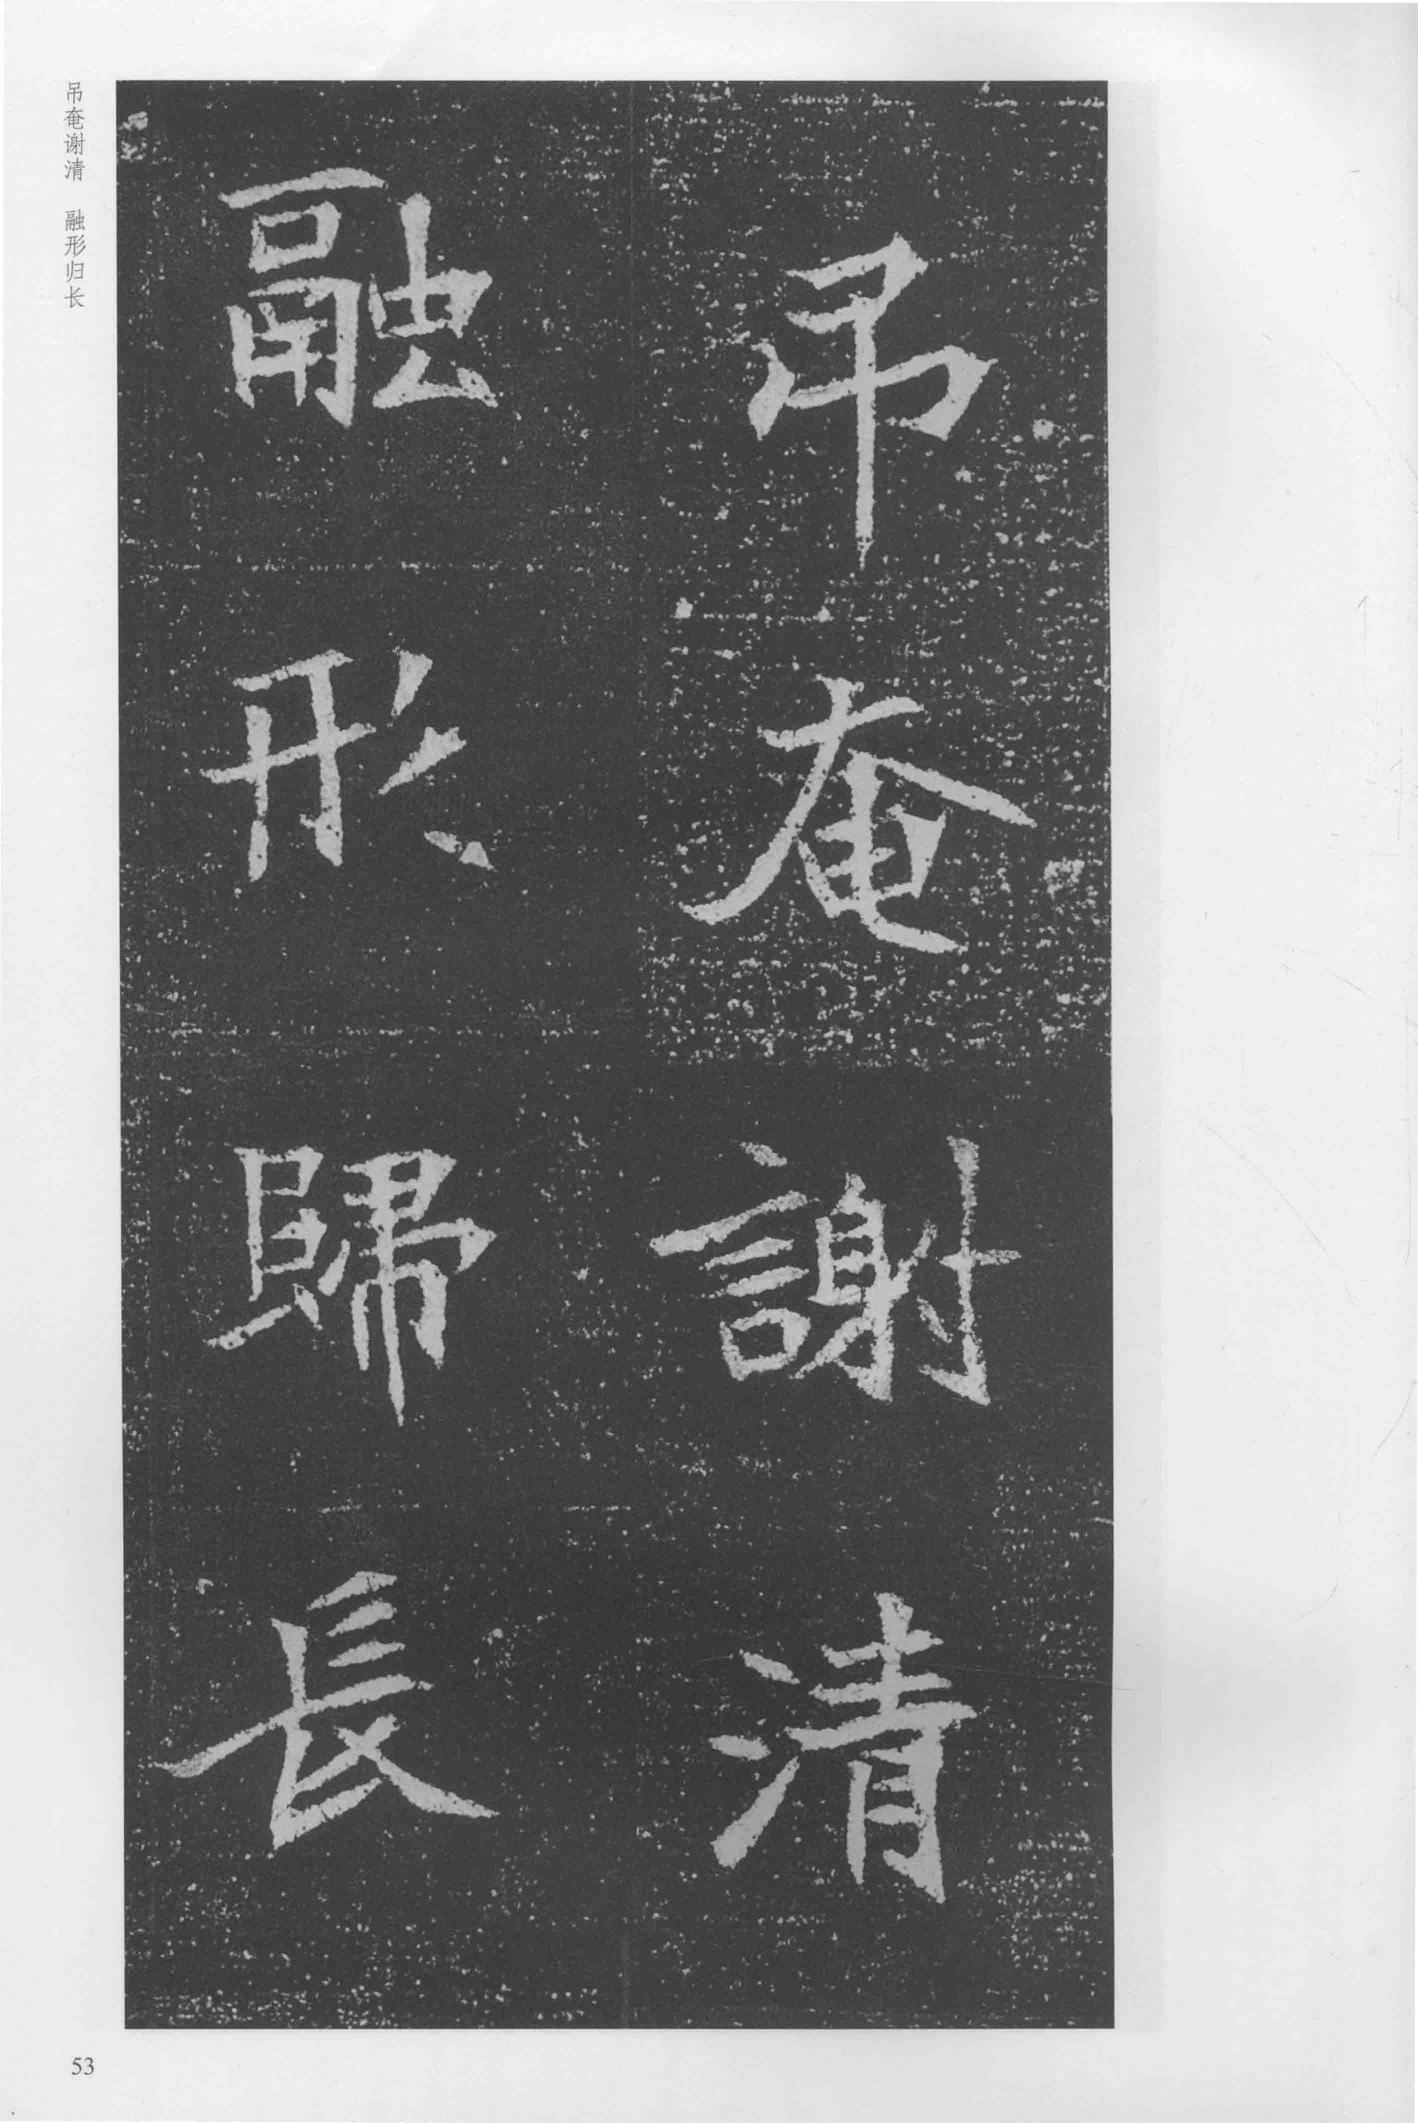 吊奄謝清
融形歸長
吊奄谢清 融形归长
53